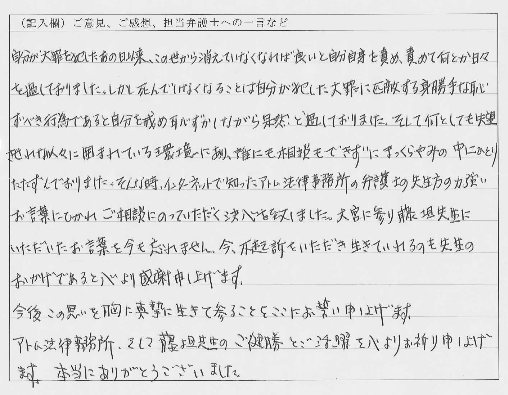 (記入欄) ご意見、ご感想、担当弁護士への一言など
自分が大罪を犯したあの日以来、この世から消えていなくなれば良いと自分自身を責め、責めて何とか日々
を過しておりました。しかし死んでいなくなることは自分が犯した大罪に匹敵する身勝手な恥
ずべき行為であると自分を戒め恥ずかしながら と過しておりました。そして何としても
人々に囲まれている環境にあり、誰にも相談もできずにまっくらやみの中にひとり
たたずんでおりました。そんな時、インターネットで知ったアトム法律事務所の弁護士の先生方の力強い
お言葉にひかれ ご相談にのっていただく決心を致しました。大宮に参り藤垣先生に
いただいたお言葉を今も忘れません。今、不起訴をいただき生きていれるのも先生の
おかげであると心より感謝申し上げます。
今後この思いを胸に真摯に生きて参ることをここにお誓い申し上げます。
アトム法律事務所、そして藤垣先生のご健勝とご活躍を心よりお祈り申し上げ
ます。本当にありがとうございました。